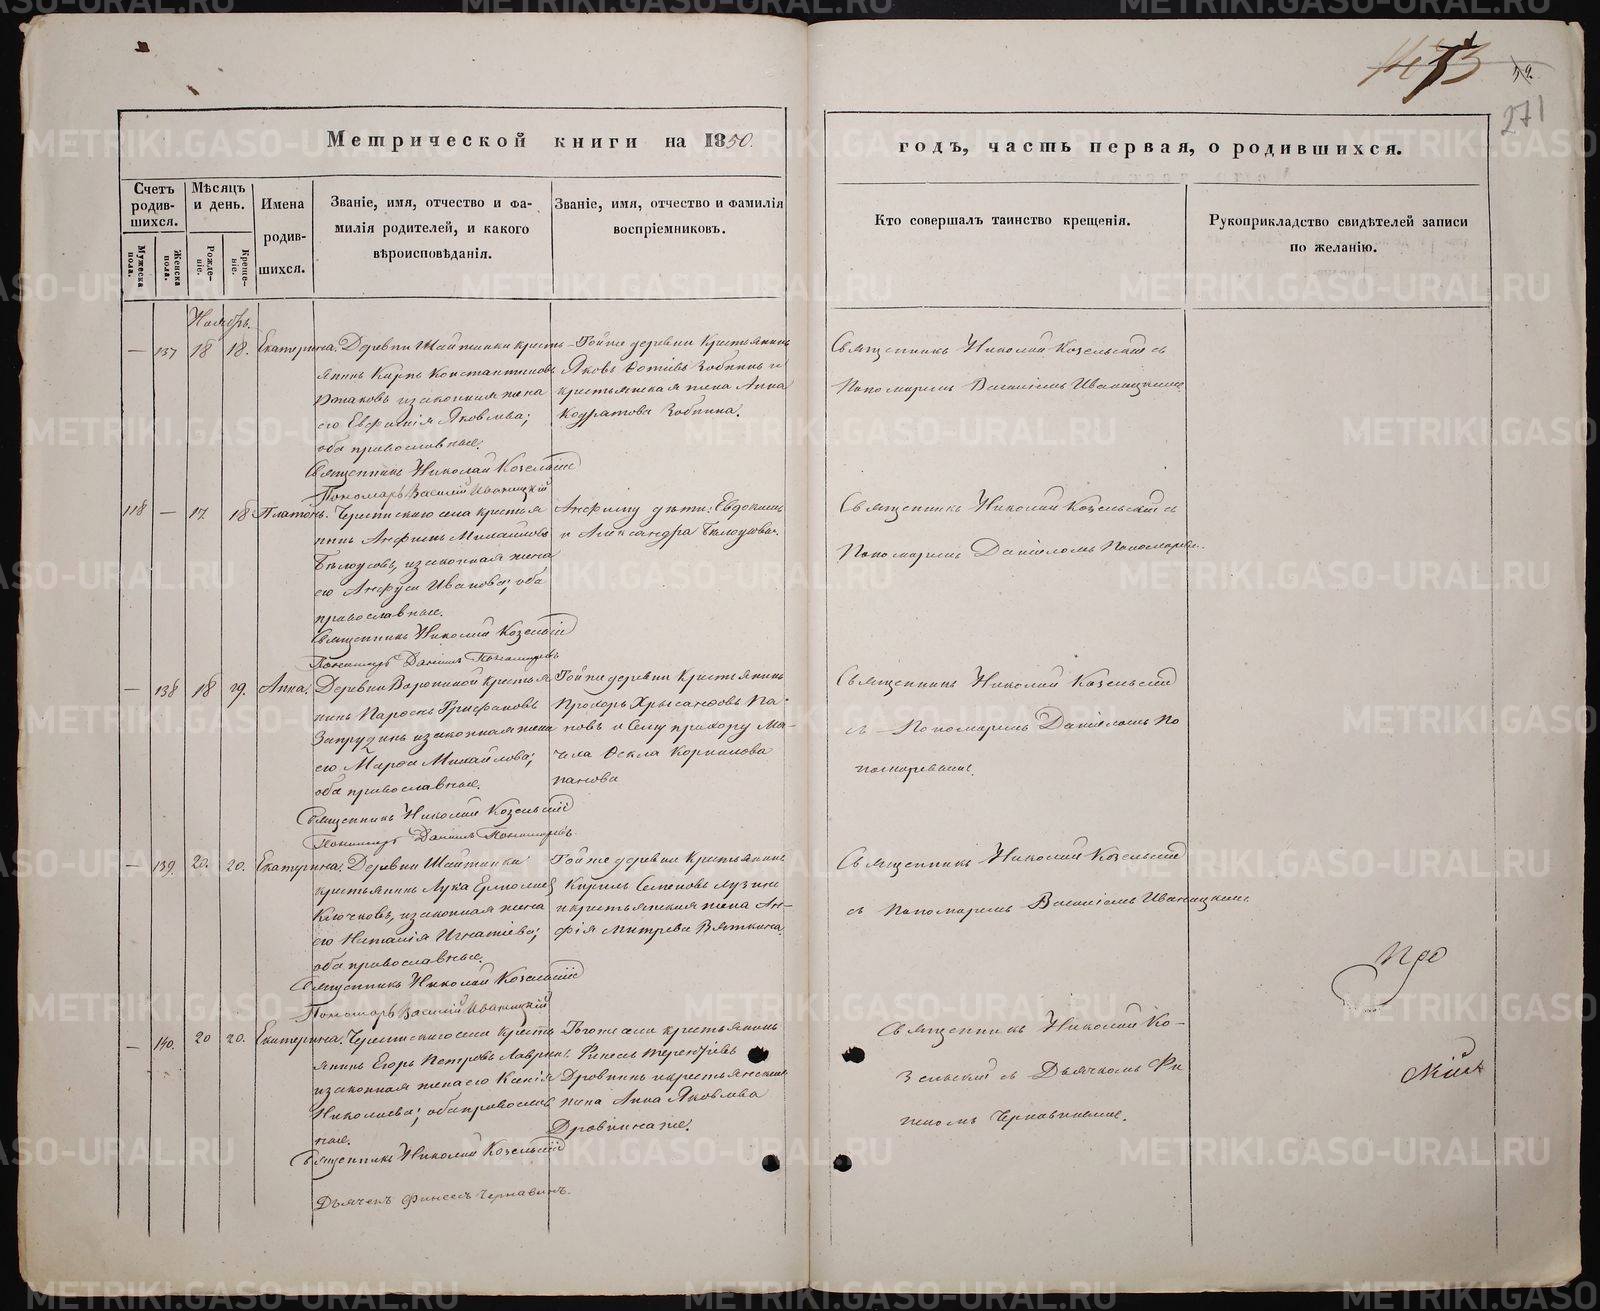 1473
52.
271
Метрической книги на 1850.
годъ, часть первая, о родившихся.
Счетъ родив-шихся.
Мужеска пола.
Женска пола.
Мѣсяцъ и день.
Рожде-ніе.
Креще-ніе.
Имена родив-шихся.
Званіе, имя, отчество и фа-
милія родителей, и какого
вѣроисповѣданія.
Званіе, имя, отчество и фамилія
воспріемниковъ.
Кто совершалъ таинство крещенія.
Рукоприкладство свидѣтелей записи
по желанію.
Ноябрь.
— 137 18 18. Екатерина.
Деревни Шайтанки кресть-
янинъ Карпъ Константиновъ
Ржаковъ, изаконная жена
его Евфимія Яковлева;
оба православные.
Священникъ Николай Козельскій
Пономарь Василій Иваницкій
Тойже деревни Крестьянинъ
Яковъ Фотіевъ Зобнинъ и
крестьянская жена Анна
Кодратова Зобнина.
Священникъ Николай Козельскій съ
Пономаремъ Василіемъ Иваницкимъ
118 — 17 18 Платонъ.
Черемискаго села крестья
нинъ Анфимъ Михаиловъ
Бѣлоусовъ, изаконная жена
его Анфуса Иванова; оба
православные.
Священникъ Николай Козельскій
Пономарь Даніилъ Пономаревъ
Анфиму дѣти: Евдокимъ
и Александра Бѣлоусовы.
Священникъ Николай Козельскій съ
Пономаремъ Даніиломъ Пономаревы..
— 138 18 19. Анна.
Деревни Ворониной крестья
нинъ Трифановъ
Запрудинъ изаконная жена
его Марѳа Михайлова;
оба православные.
Священникъ Николай Козельскій
Пономарь Даніилъ Пономаревъ.
Тойже деревни Крестьянинъ
Прохоръ Хрысанфовъ Па-
новъ и Сему прихору Ма-
чиха Ѳекла Корнилова
панова
Священникъ Николай Козельскій
съ Пономаремъ Даніиломъ По
номаревымъ.
— 139. 20. 20. Екатерина.
Деревни Шайтанки
крестьянинъ Лука Ермолаев
Клочковъ, изаконная жена
его Наталія Игнатіева;
оба православные.
Священникъ Николай Козельскій
Пономарь Василій Иваницкій
Тойже деревни Крестьянинъ
Кирилъ Семеновъ Лузинъ
и крестьянская жена Ан-
фія Митрева Вяткина.
Священникъ Николай Козельскій
съ Пономаремъ Василіемъ Иваницкимъ
— 140. 20 20. Екатерина.
Черемискаго села кресть
янинъ Егоръ Петровъ Лавринъ,
изаконная жена его Ксенія
Николаева; оба православ
ные.
Священникъ Николай Козельскій
Дьячекъ Финеесъ Чернавинъ.
Тогоже села крестьянинъ
Финеесъ Терентіевъ
Дровнинъ и крестьянская
жена Анна Яковлева
Дровнинаже.
Священникъ Николай Ко-
зельскій съ Дьячкомъ Фи
неесомъ Чернавинымъ.
Про